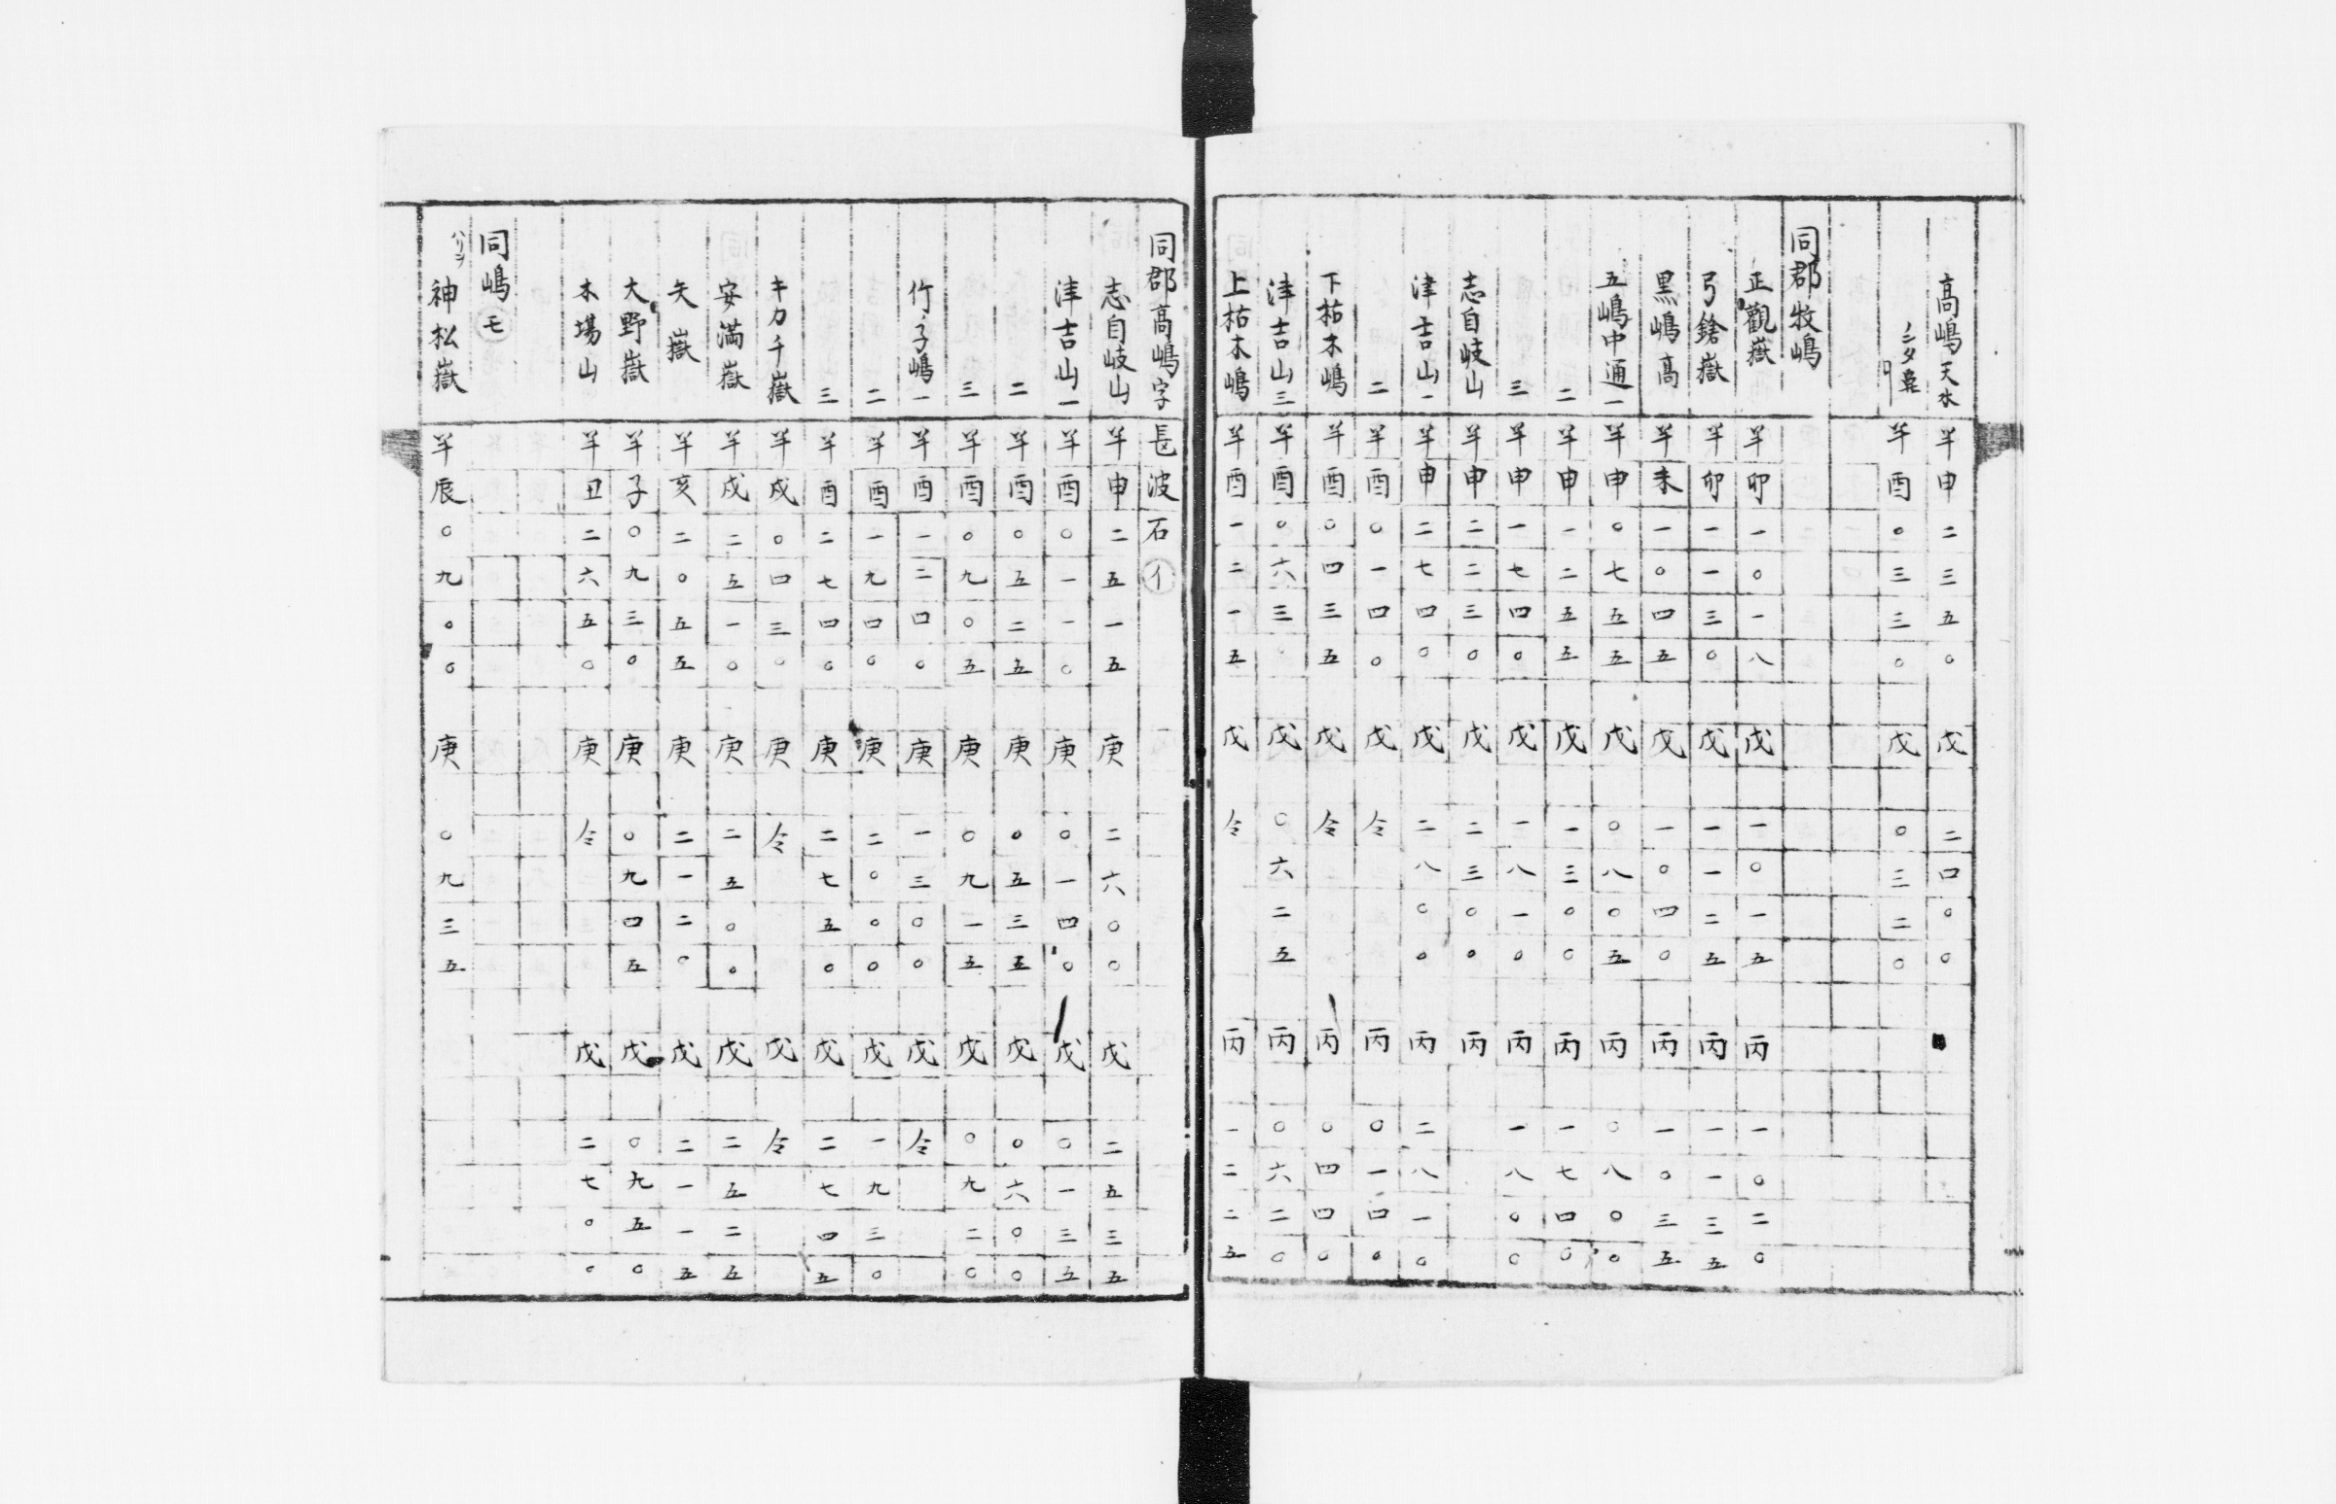 高嶋天水 羊申二三五〇 戊二四〇〇
羊酉〇三三〇 戊〇三二〇
同郡牧嶋
正觀嶽 羊卯一〇一八 戊一〇一五 丙一〇二〇
弓鎗嶽 羊卯一一三〇 戊一一二五 丙一一三五
黒嶋高 羊未一〇四五 戊一〇四〇 丙一〇三五
五嶋中通一 羊申〇七五五 戊〇八〇五 丙〇八〇〇
二 羊申一二五五 戊一三〇〇 丙一七四〇
三 羊申一七四〇 戊一八一〇 丙一八〇〇
志自岐山 羊申二二三〇 戊二三〇〇 丙
津吉山一 羊申二七四〇 戊二八〇〇 丙二八一〇
二 羊酉〇一四〇 戊仝 丙〇一四〇
下枯木嶋 羊酉〇四三五 戊仝 丙〇四四〇
津吉山三 羊酉〇六三〇 戊〇六二五 丙〇六二〇
上枯木嶋 羊酉一二一五 戊仝 丙一二二五
同郡高嶋字長波石㋑
志自岐山 羊申二五一五 庚二六〇〇 戊二五三五
津吉山一 羊酉〇一一〇 庚〇一四〇 戊〇一三五
二 羊酉〇五二五 庚〇五三五 戊〇六〇〇
三 羊酉〇九〇五 庚〇九一五 戊〇九二〇
竹子嶋一 羊酉一二四〇 庚一三〇〇 戊仝
二 羊酉一九四〇 庚二〇〇〇 戊一九三〇
三 羊酉二七四〇 庚二七五〇 戊二七四五
キカチ嶽 羊戌〇四三〇 庚仝 戊仝
安満嶽 羊戌二五一〇 庚二五〇〇 戊二五二五
矢嶽 羊亥二〇五五 庚二一二〇 戊二一一五
大野嶽 羊子〇九三〇 庚〇九四五 戊〇九五〇
木場山 羊丑二六五〇 庚仝 戊二七〇〇
同嶋㋲
神松嶽 羊辰〇九〇〇 庚〇九三五